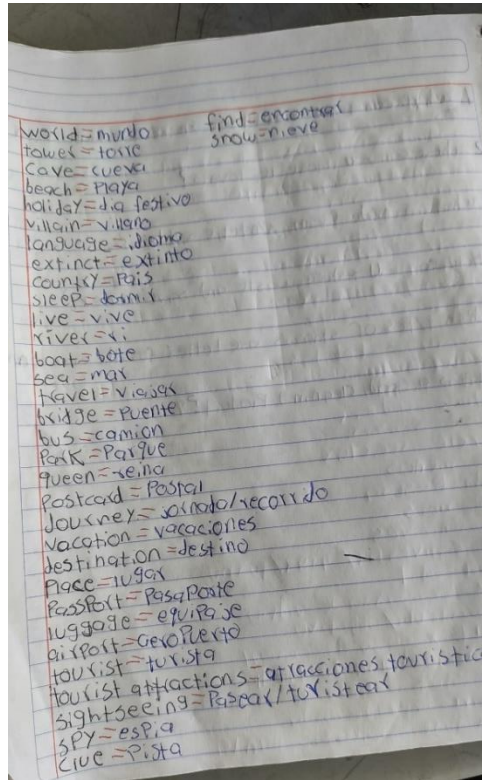 world=mundo
find=encontrar
snow=nieve
tower=torre
cave=cueva
beach=Playa
holiday=dia festivo
villain=villano
language=idioma
extinct=extinto
country=Pais
sleep=dormir
live=vive
river=ri
boat=bote
sea=mar
travel=viajar
bridge=Puente
bus=camion
Park=Parque
queen=reina
Postcard=Postal
Journey=jornada/recorrido
vacation=vacaciones
destination=destino
Place=lugar
PassPort=PasaPorte
luggage=equiPaje
airPort=aeroPuerto
tourist=turista
tourist attractions=atracciones touristic
sightseeing=Pasear/turistear
sPy=esPia
Clue=Pista